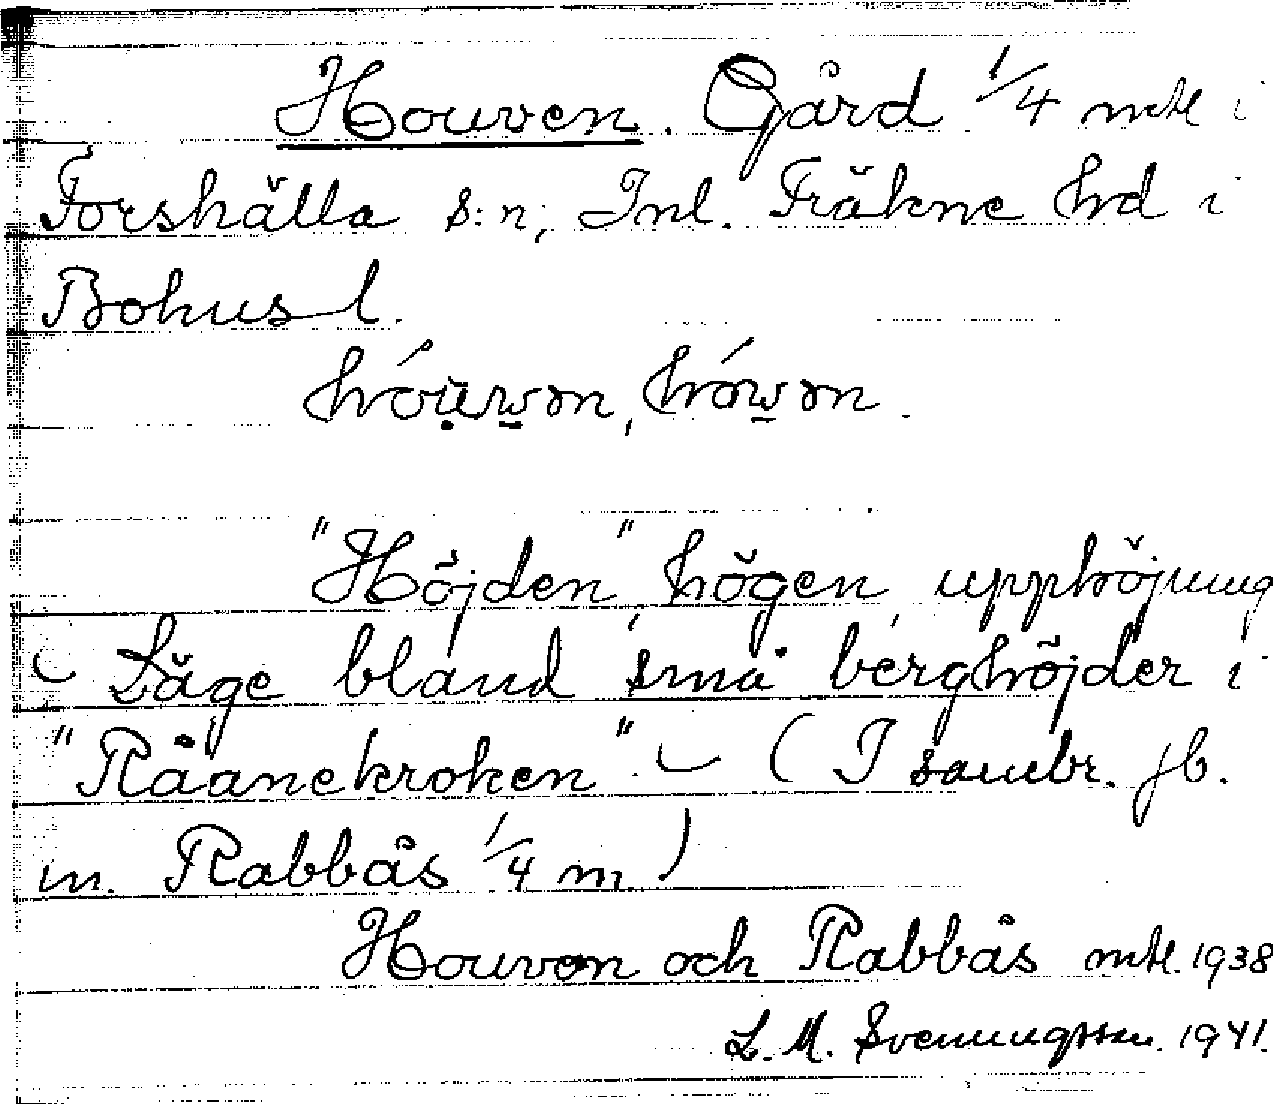 Houven. Gård 1/4 mtl i
Forshälla s:n, Inl. Fräkne hrd i
Bohusl.
hóu̯w̲ən, hów̲ən.
"Höjden", högen, upphöjning
Läge bland små berghöjder i
"Råanekroken". (I sambr. jb.
m. Rabbås 1/4 m)
Houven och Rabbås mtl. 1938
L. M. Svenungsson. 1941.